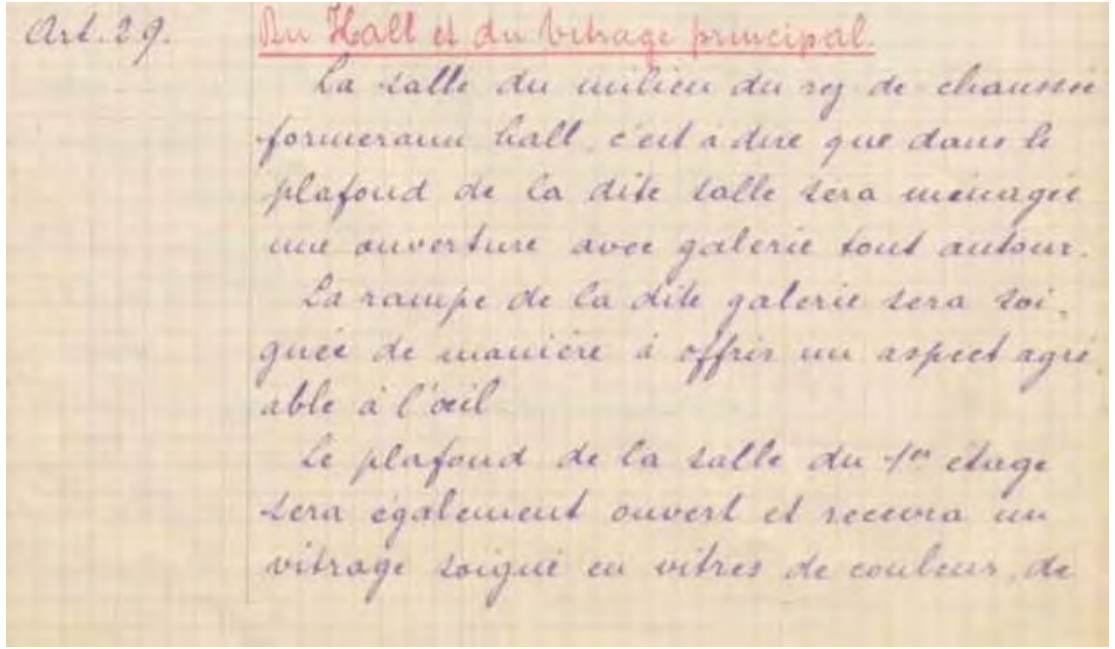 Art. 29. Du Hall et du Vitrage principal
La salle du milieu du rez de chaussée
formera un hall, c'est à dire que dans le
plafond de la dite salle sera ménagée
une ouverture avec galerie tout autour.
La rampe de la dite galerie sera soi-
gnée de manière à offrir un aspect agré
able à l'œil
Le plafond de la salle du 1er étage
sera également ouvert et recevra un
vitrage soigné en vitres de couleur, de